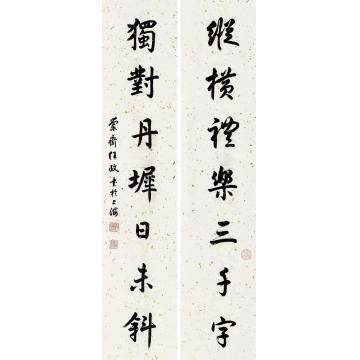 縱橫禮樂三千字
獨對丹墀日未斜
蘭齋任政書於上海